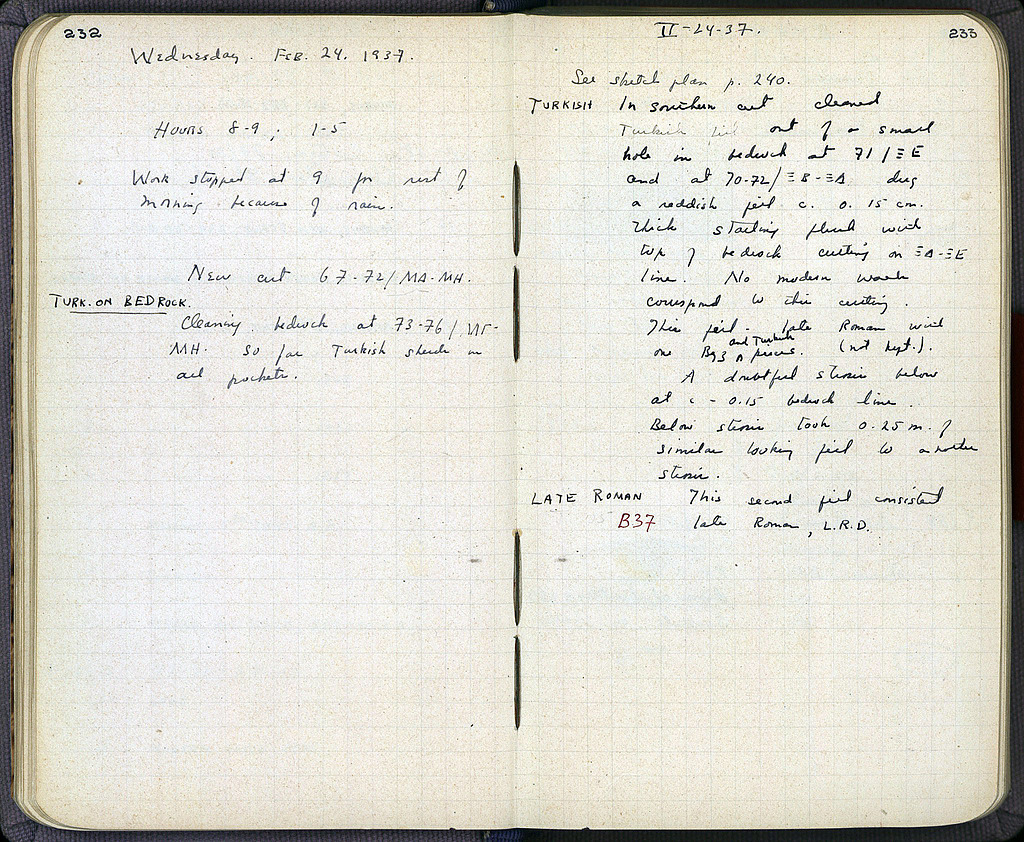 232
Wednesday. FEB. 24. 1937.
HOURS 8-9; 1-5
Work stopped at 9 for rest of
morning because of rain.
New cut 67-72/MA-MH.
TURK. ON BEDROCK.
Cleaning bedrock at 73-76/
MH. So far Turkish sherds in
all pockets.
II-24-37.
233
See sketch plan p. 240.
TURKISH In southern cut cleaned
Turkish fill out of a small
hole in bedrock at 71/ΞE
and at 70-72/ΞB-ΞΔ dug
a reddish fill c. 0.15 cm.
thick starting flush with
top of bedrock cutting on ΞΔ-ΞE
line. No modern
correspond to this cutting.
This fill late Roman with
one and Turkish pieces. (not kept.).
A doubtful strosis below
at c - 0.15 bedrock line.
Below strosis took 0.25 m. of
similar looking fill to another
strosis.
LATE ROMAN This second fill consistent
B37 late Roman, L.R.D.